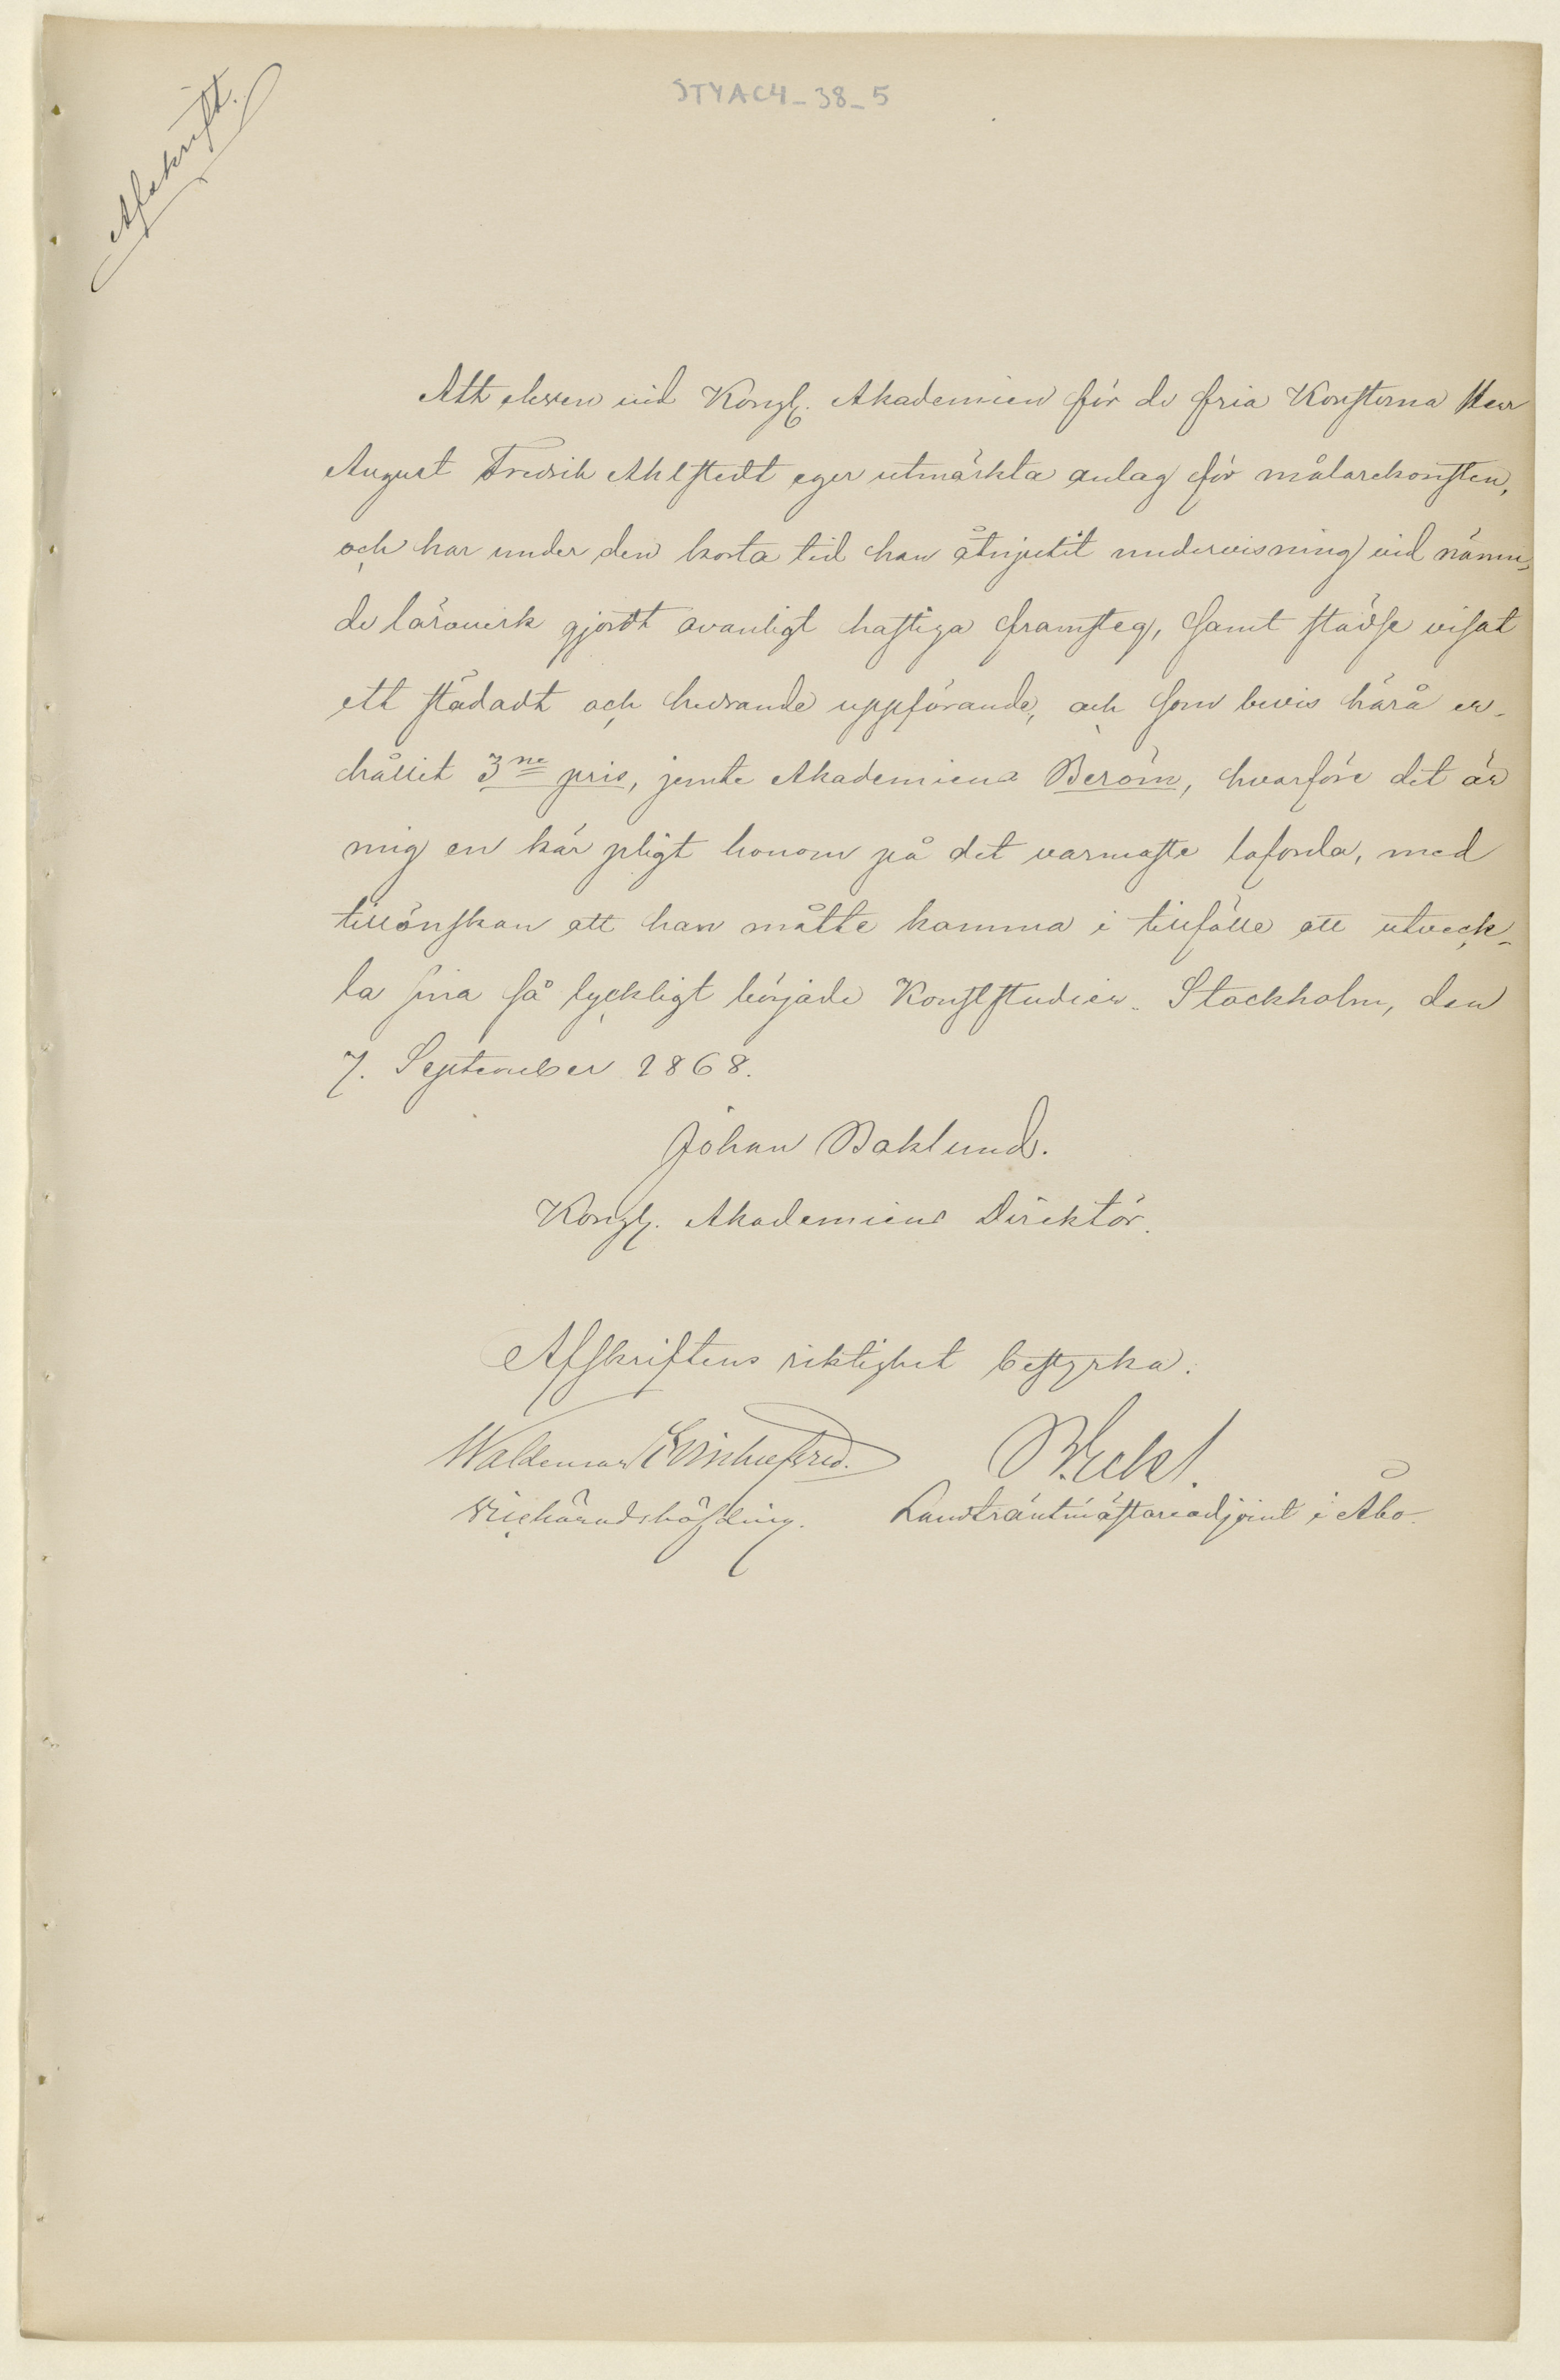 STYAC4_38_5
Afskrift.
Att eleven vid Kongl. Akademien för de fria Konsterna Herr
August Fredrik Ahlstedt eger utmärkta anlag för målarekonsten,
och har under den korta tid han åtnjutit undervisning vid nämn-
de läroverk gjordt ovanligt hastiga framsteg, samt städse visat
ett städadt och hedrande uppförande, och som bevis härå er-
hållit 3ne pris, jemte Akademiens Beröm, hvarföre det är
mig en kär pligt honom på det varmaste loforda, med
tillönskan att han måtte komma i tillfälle att utveck-
la sina så lyckligt började Konststudier. Stockholm, den
7. September 1868.
Johan Boklund.
Kongl. Akademiens Direktör.
Afskriftens riktighet bestyrka:
Waldemar
Vicehäradshöfding. Landträntmästareadjoint i Åbo.